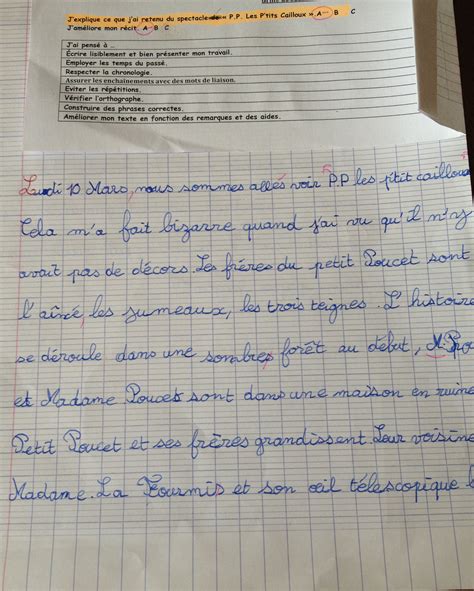 J'explique ce que j'ai retenu du spectacle « P.P. Les P'tits Cailloux » A B C
J'améliore mon récit. A B C
J'ai pensé à ...
Ecrire lisiblement et bien présenter mon travail.
Employer les temps du passé.
Respecter la chronologie.
Assurer les enchaînements avec des mots de liaison.
Eviter les répétitions.
Vérifier l'orthographe.
Construire des phrases correctes.
Améliorer mon texte en fonction des remarques et des aides.
Lundi 10 Mars, nous sommes allés voir P.P les p'tit cailloux
Cela m'a fait bizarre quand j'ai vu qu'il n'y
avait pas de décors. Les frères du petit Poucet sont
l'aîné, les jumeaux, les trois teignes. L'histoire
se déroule dans une sombres forêt au début, M.
et Madame Poucet sont dans une maison en ruine
Petit Poucet et ses frères grandissent Leur voisine
Madame. La Fourmis et son œil télescopique